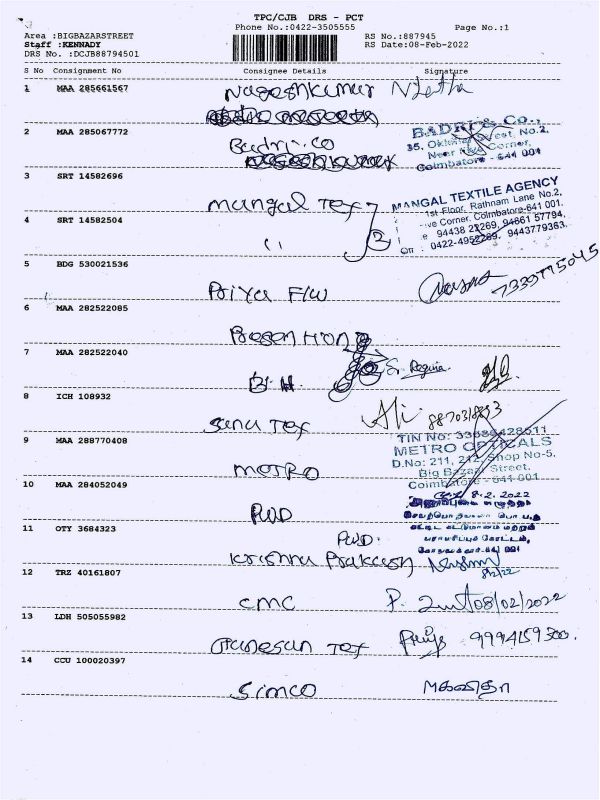 TPC/CJB DRS - PCT
Phone No.:0422-3505555
Page No.:1
Area :BIGBAZARSTREET
Staff :KENNADY
DRS No. :DCJB88794501
RS No.:887945
RS Date:08-Feb-2022
S No Consignment No Consignee Details Signature
1 MAA 285661567
Nageshkumar
2 MAA 285067772
Badri. co
BADRI & Co.,
35, West, No.2,
Near Corner,
Coimbatore - 641 001
3 SRT 14582696
Mangal Tex
MANGAL TEXTILE AGENCY
1st Floor, Rathnam Lane No.2,
ve Corner, Coimbatore-641 001.
94438 23269, 94861 57794,
0422-4952269, 9443779363.
4 SRT 14582504
〃 2
5 BDG 530021536
Priya F/W
7339775045
6 MAA 282522085
7 MAA 282522040
B. H.
S. Regina
8 ICH 108932
Sana Tex
Ali 8870318833
9 MAA 288770408
METRO
TIN No: 33686428511
METRO OPTICALS
D.No: 211, 212, Shop No-5,
Big Bazaar Street,
Coimbatore - 641 001
10 MAA 284052049
PWD
8.2.2022
11 OTY 3684323
PWD.
Krishna Prakash
8/2/22
12 TRZ 40161807
CMC
08/02/2022
13 LDH 505055982
Ganesan Tex
Priya 9994159300.
14 CCU 100020397
Simco